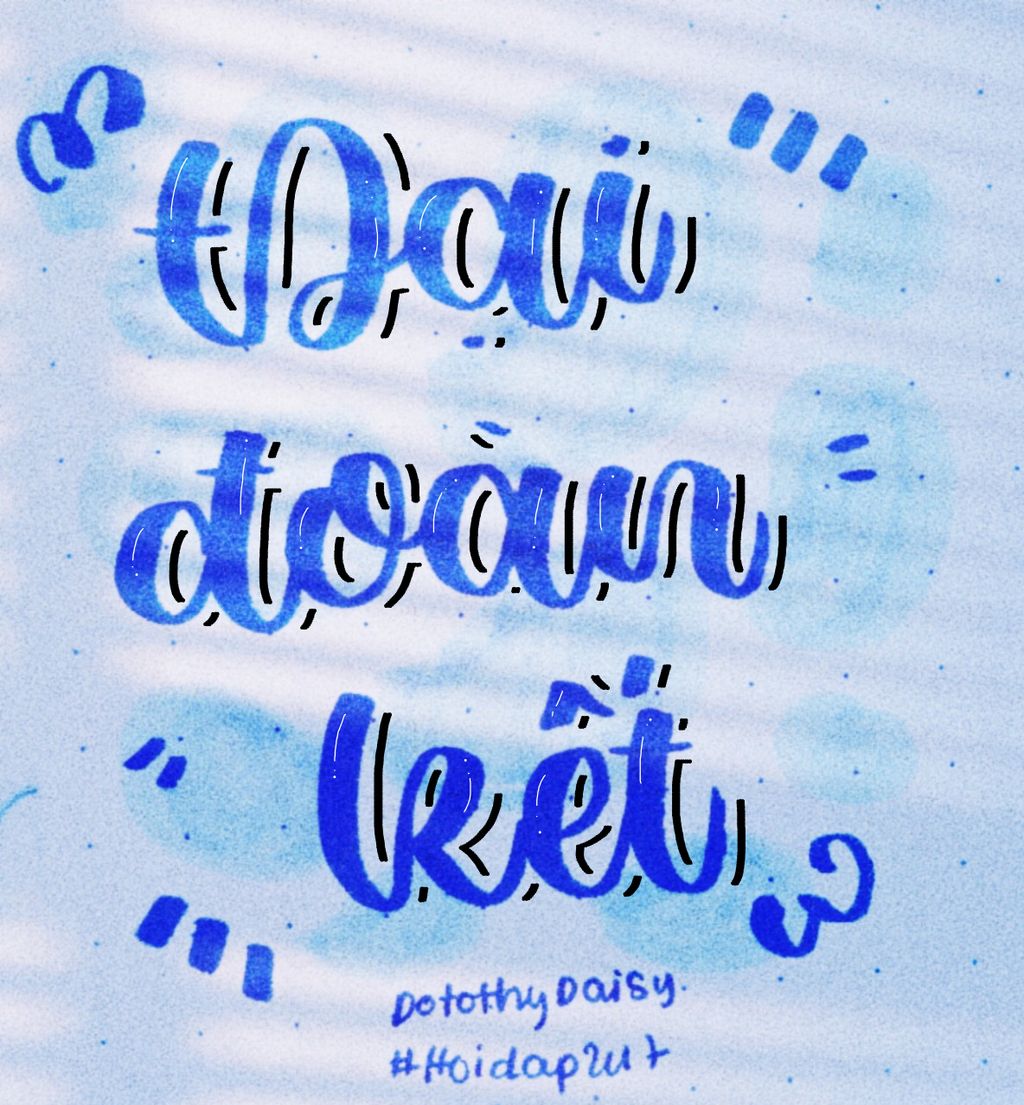 Đại
đoàn
kết
Dotothy Daisy.
#Hoidap247